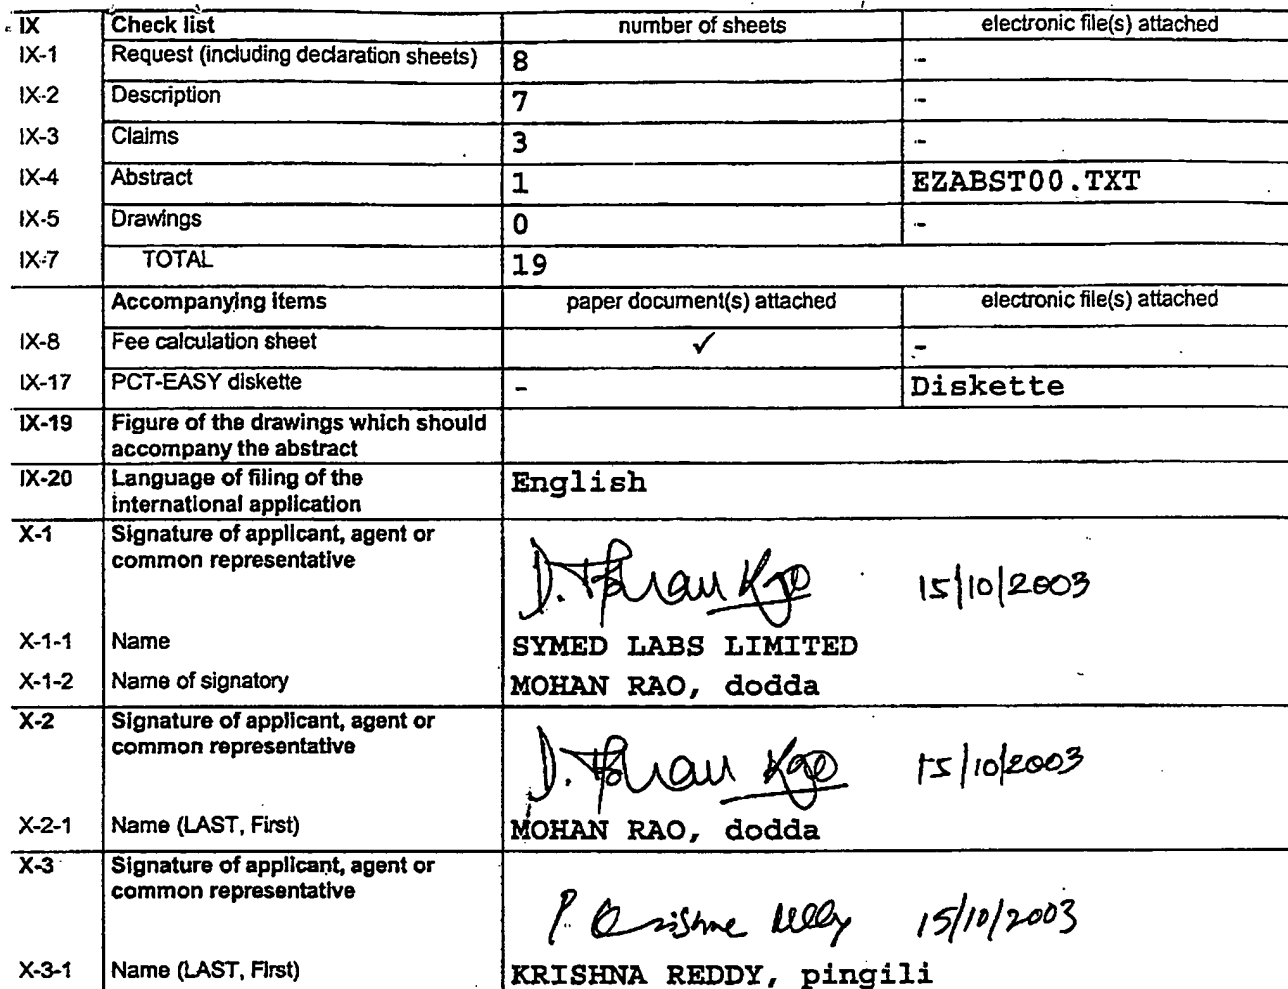 IX Check list number of sheets electronic file(s) attached
IX-1 Request (including declaration sheets) 8 -
IX-2 Description 7 -
IX-3 Claims 3 -
IX-4 Abstract 1 EZABST00.TXT
IX-5 Drawings 0 -
IX-7 TOTAL 19
Accompanying items paper document(s) attached electronic file(s) attached
IX-8 Fee calculation sheet ✓ -
IX-17 PCT-EASY diskette - Diskette
IX-19 Figure of the drawings which should
accompany the abstract
IX-20 Language of filing of the English
international application
X-1 Signature of applicant, agent or
common representative
D. Mohan Rao 15/10/2003
X-1-1 Name SYMED LABS LIMITED
X-1-2 Name of signatory MOHAN RAO, dodda
X-2 Signature of applicant, agent or
common representative
D. Mohan Rao 15/10/2003
X-2-1 Name (LAST, First) MOHAN RAO, dodda
X-3 Signature of applicant, agent or
common representative
P. Krishna Reddy 15/10/2003
X-3-1 Name (LAST, First) KRISHNA REDDY, pingili